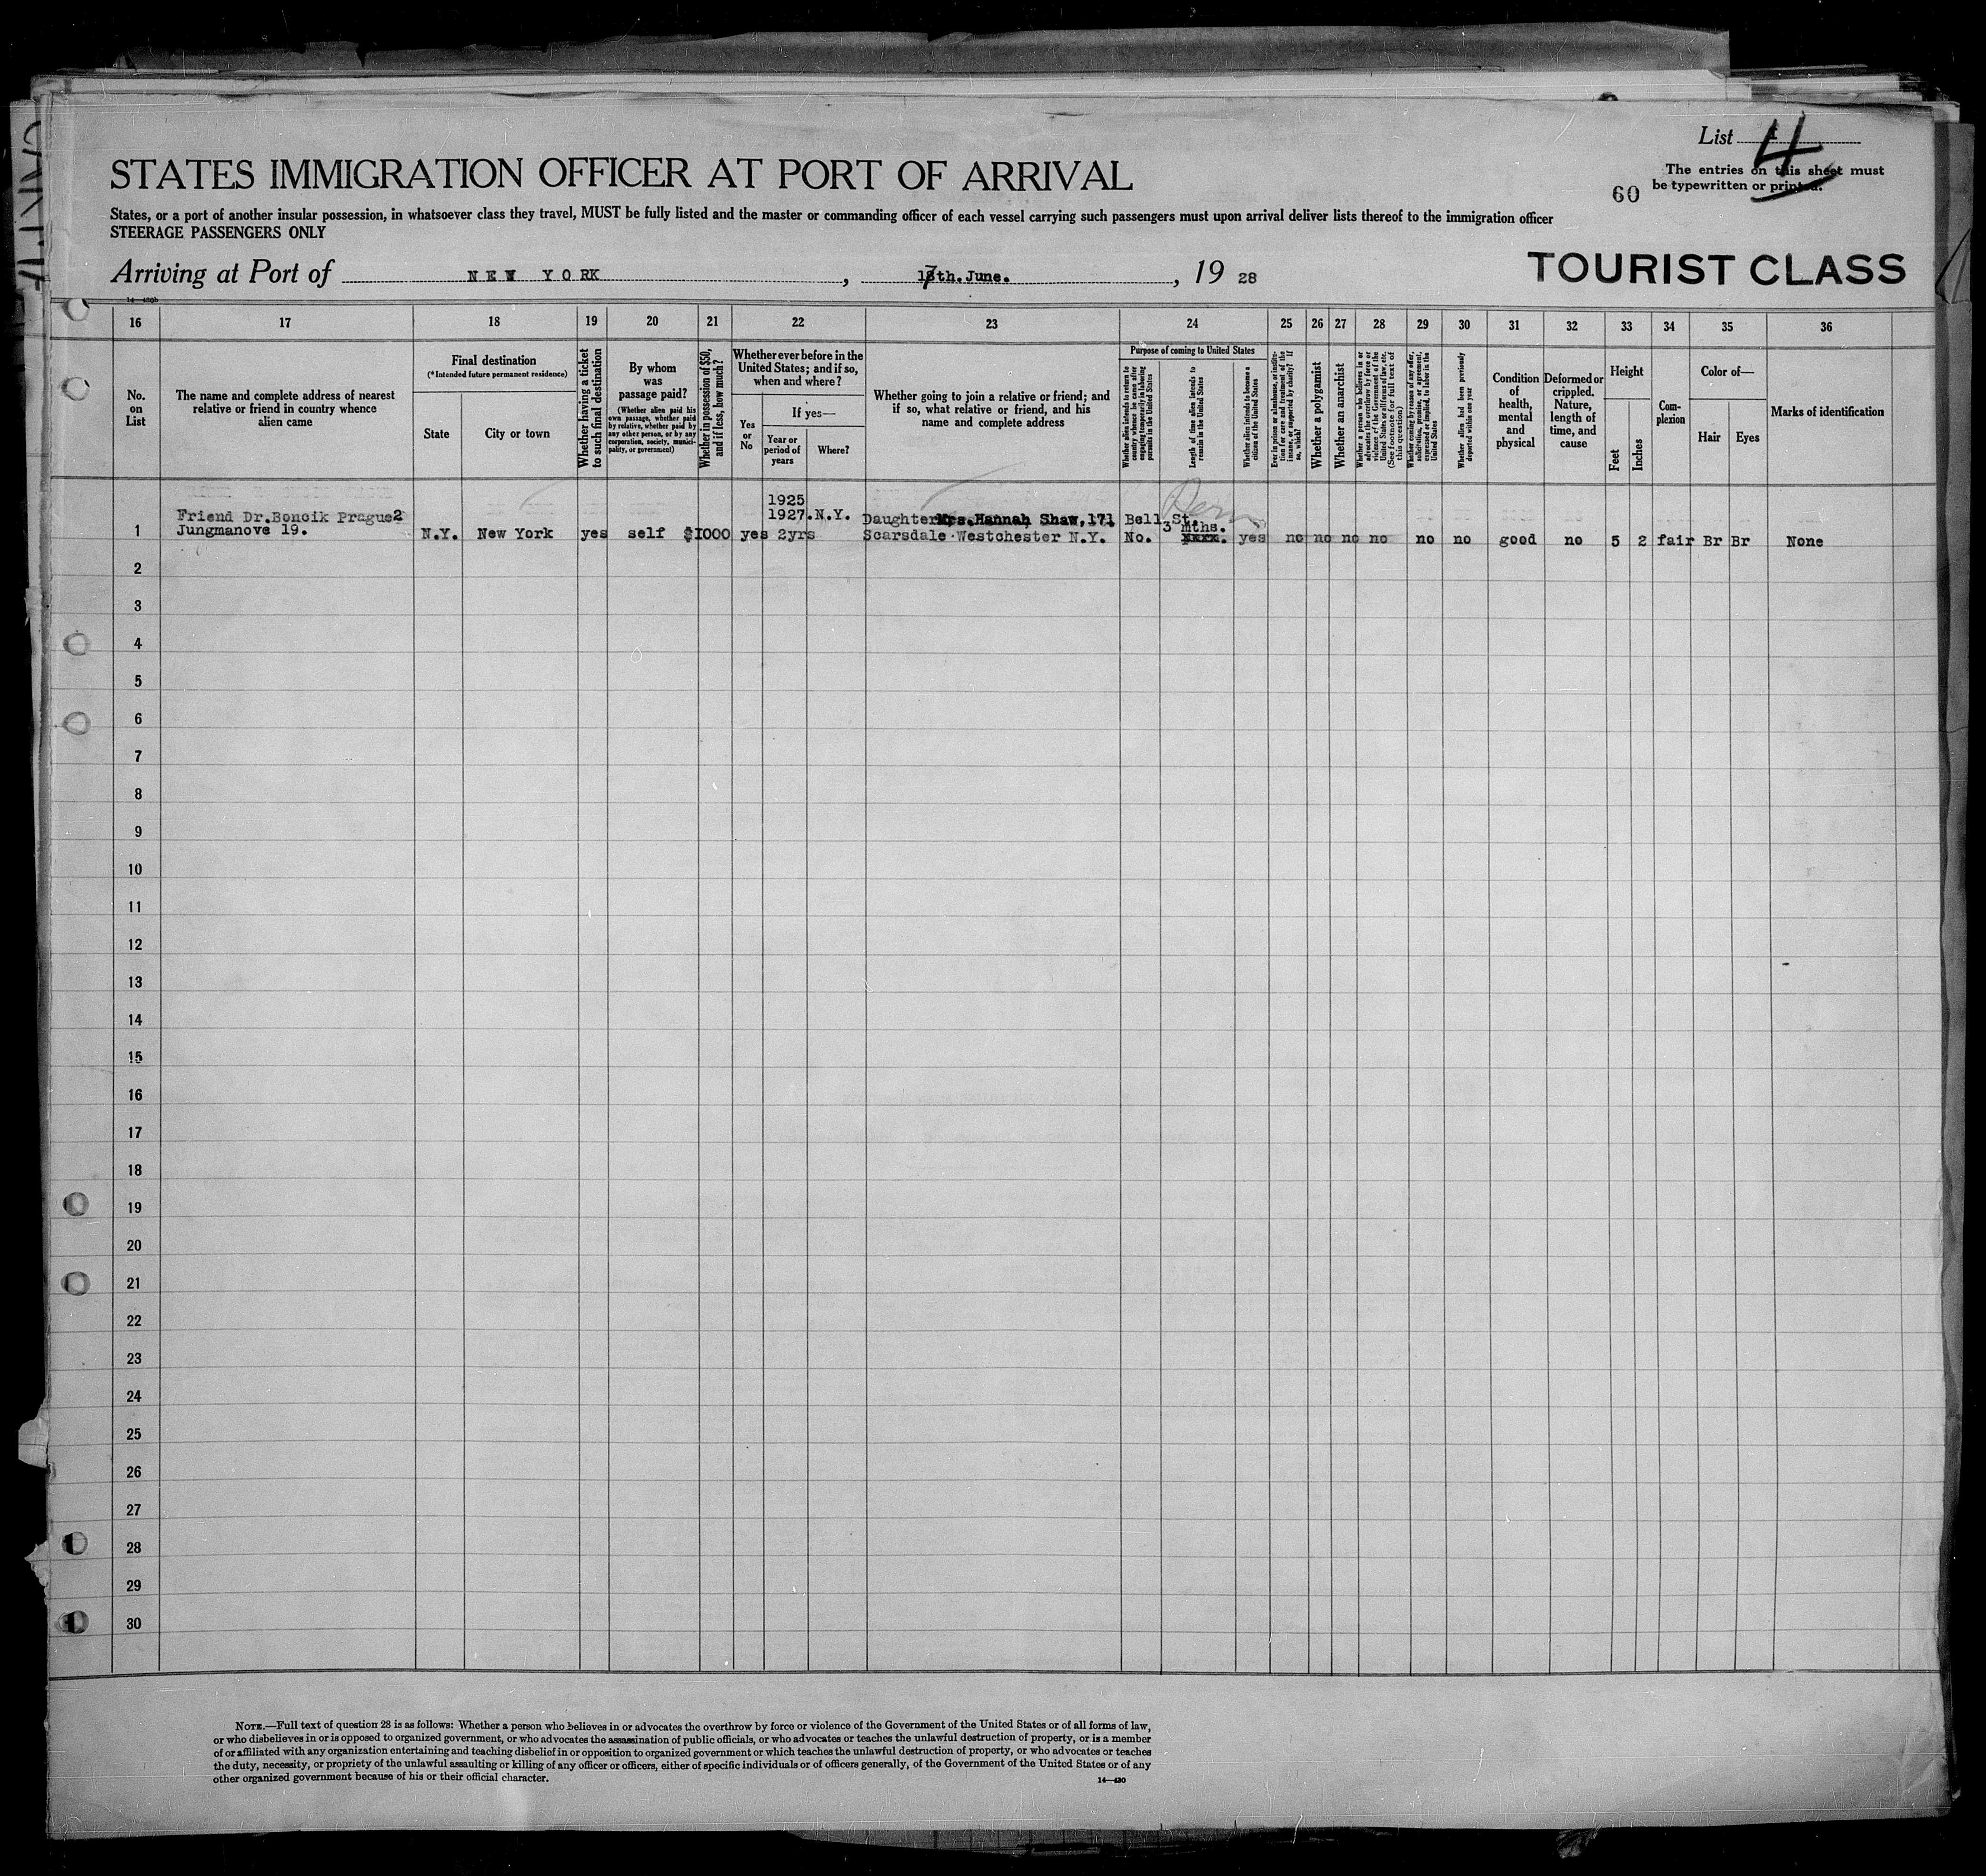 List 4
STATES IMMIGRATION OFFICER AT PORT OF ARRIVAL
The entries on this sheet must
be typewritten or printed.
60
States, or a port of another insular possession, in whatsoever class they travel, MUST be fully listed and the master or commanding officer of each vessel carrying such passengers must upon arrival deliver lists thereof to the immigration officer
STEERAGE PASSENGERS ONLY
TOURIST CLASS
Arriving at Port of NEW YORK, 17th.June., 19 28
14—430b
16 17 18 19 20 21 22 23 24 25 26 27 28 29 30 31 32 33 34 35 36
No.
on
List
The name and complete address of nearest
relative or friend in country whence
alien came
Final destination
(*Intended future permanent residence)
State
City or town
Whether having a ticket
to such final destination
By whom
was
passage paid?
(Whether alien paid his
own passage, whether paid
by relative, whether paid by
any other person, or by any
corporation, society, munici-
pality, or government)
Whether in possession of $50,
and if less, how much?
Whether ever before in the
United States; and if so,
when and where?
Yes
or
No
If yes—
Year or
period of
years
Where?
Whether going to join a relative or friend; and
if so, what relative or friend, and his
name and complete address
Purpose of coming to United States
Whether alien intends to return to
country whence he came after
engaging temporarily in laboring
pursuits in the United States
Length of time alien intends to
remain in the United States
Whether alien intends to become a
citizen of the United States
Ever in prison or almshouse, or institu-
tion for care and treatment of the
insane, or supported by charity? If
so, which?
Whether a polygamist
Whether an anarchist
Whether a person who believes in or
advocates the overthrow by force or
violence of the Government of the
United States or all forms of law, etc.
(See footnote for full text of
this question)
Whether coming by reason of any offer,
solicitation, promise, or agreement,
expressed or implied, to labor in the
United States
Whether alien had been previously
deported within one year
Condition
of
health,
mental
and
physical
Deformed or
crippled.
Nature,
length of
time, and
cause
Height
Feet
Inches
Com-
plexion
Color of—
Hair
Eyes
Marks of identification
1925
Friend Dr.Boncik Prague2 1927.N.Y. Daughter Mrs.Hannah Shaw,171 Bell St. 3 mths.
1 Jungmanove 19. N.Y. New York yes self $1000 yes 2yrs Scarsdale Westchester N.Y. No. xxxx. yes no no no no no no good no 5 2 fair Br Br None
2
3
4
5
6
7
8
9
10
11
12
13
14
15
16
17
18
19
20
21
22
23
24
25
26
27
28
29
30
NOTE.—Full text of question 28 is as follows: Whether a person who believes in or advocates the overthrow by force or violence of the Government of the United States or of all forms of law,
or who disbelieves in or is opposed to organized government, or who advocates the assassination of public officials, or who advocates or teaches the unlawful destruction of property, or is a member
of or affiliated with any organization entertaining and teaching disbelief in or opposition to organized government or which teaches the unlawful destruction of property, or who advocates or teaches
the duty, necessity, or propriety of the unlawful assaulting or killing of any officer or officers, either of specific individuals or of officers generally, of the Government of the United States or of any
other organized government because of his or their official character.
14—430